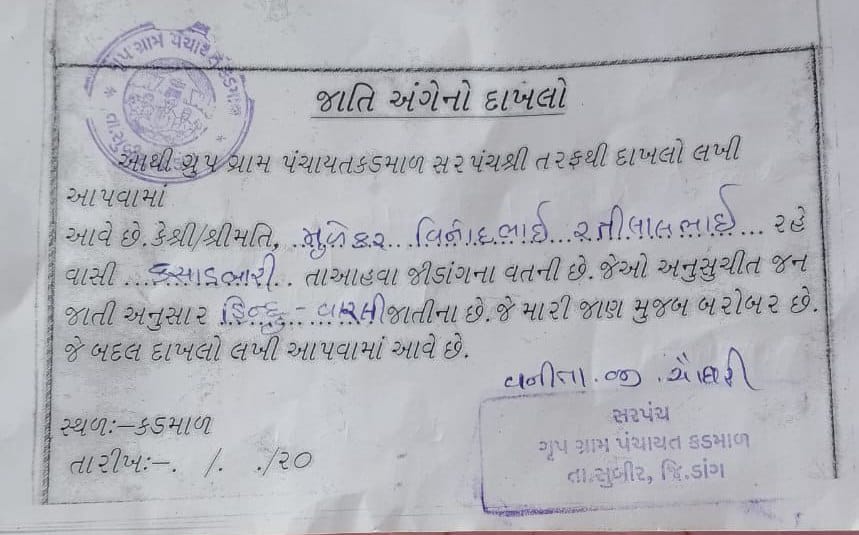 ગૃપ ગ્રામ પંચાયત કડમાળ
તા.સુબીર
જાતિ અંગેનો દાખલો
આથી ગ્રુપ ગ્રામ પંચાયતકડમાળ સરપંચશ્રી તરફથી દાખલો લખી
આપવામાં
આવે છે.કેશ્રી/શ્રીમતિ, મુળેકર વિનોદભાઈ રતીલાલભાઈ રહે
વાસી કસાડબારી તાઆહવા જીડાંગના વતની છે.જેઓ અનુસુચીત જન
જાતી અનુસાર હિન્દુ - વારલી જાતીના છે.જે મારી જાણ મુજબ બરોબર છે.
જે બદલ દાખલો લખી આપવામાં આવે છે.
વનીતા.જી.ચૌધરી
સ્થળઃ-કડમાળ
તારીખઃ-. /. ./૨૦
સરપંચ
ગૃપ ગ્રામ પંચાયત કડમાળ
તા.સુબીર, જિ.ડાંગ